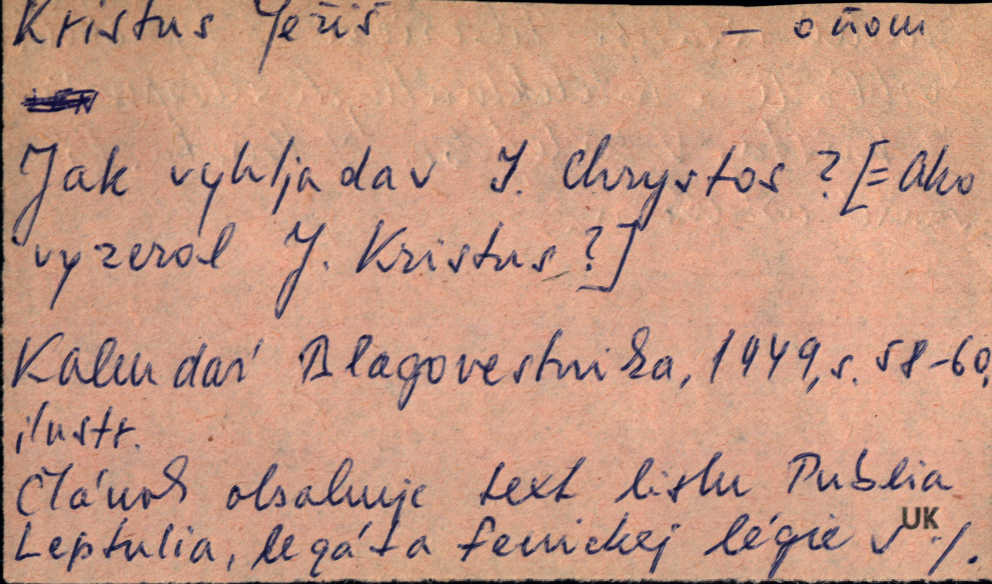 Kristus Ježiš — o ňom
Jak vyhljadav J. Chrystos? [= Ako
vyzeral J. Kristus?]
Kalendar' Blagovestnika, 1949, s. 58-60,
ilustr.
Článok obsahuje text listu Publia
Leptulia, legáta fenickej légie v ./.
UK